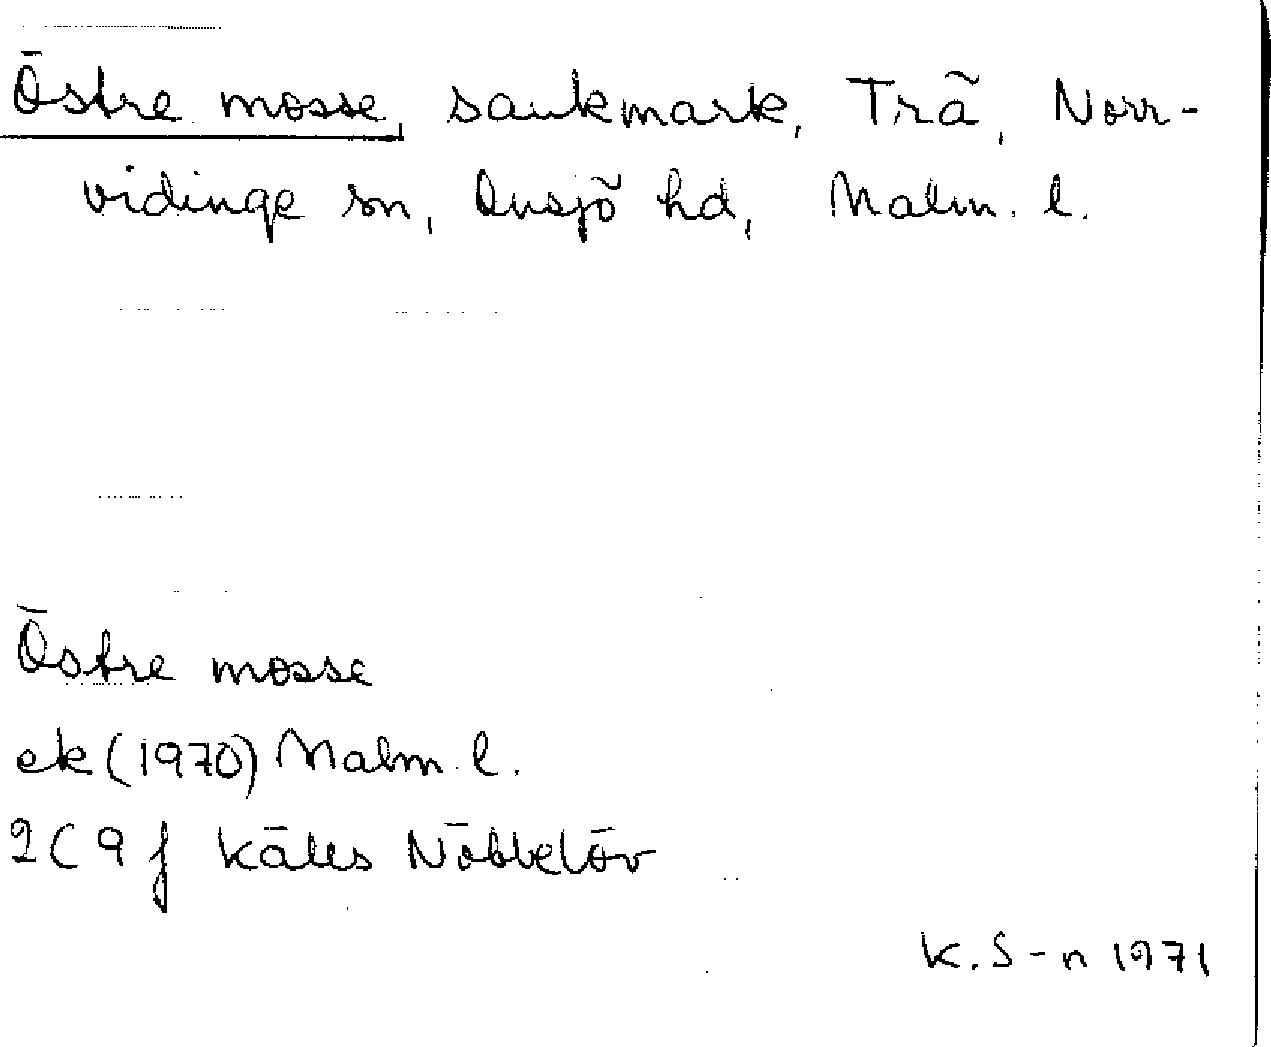 Östre mosse, sankmark, Trä, Norr-
vidinge sn, Onsjö hd, Malm. l.
Östre mosse
ek (1970) Malm. l.
2C 9 f Källs Nöbbelöv
K. S-n 1971